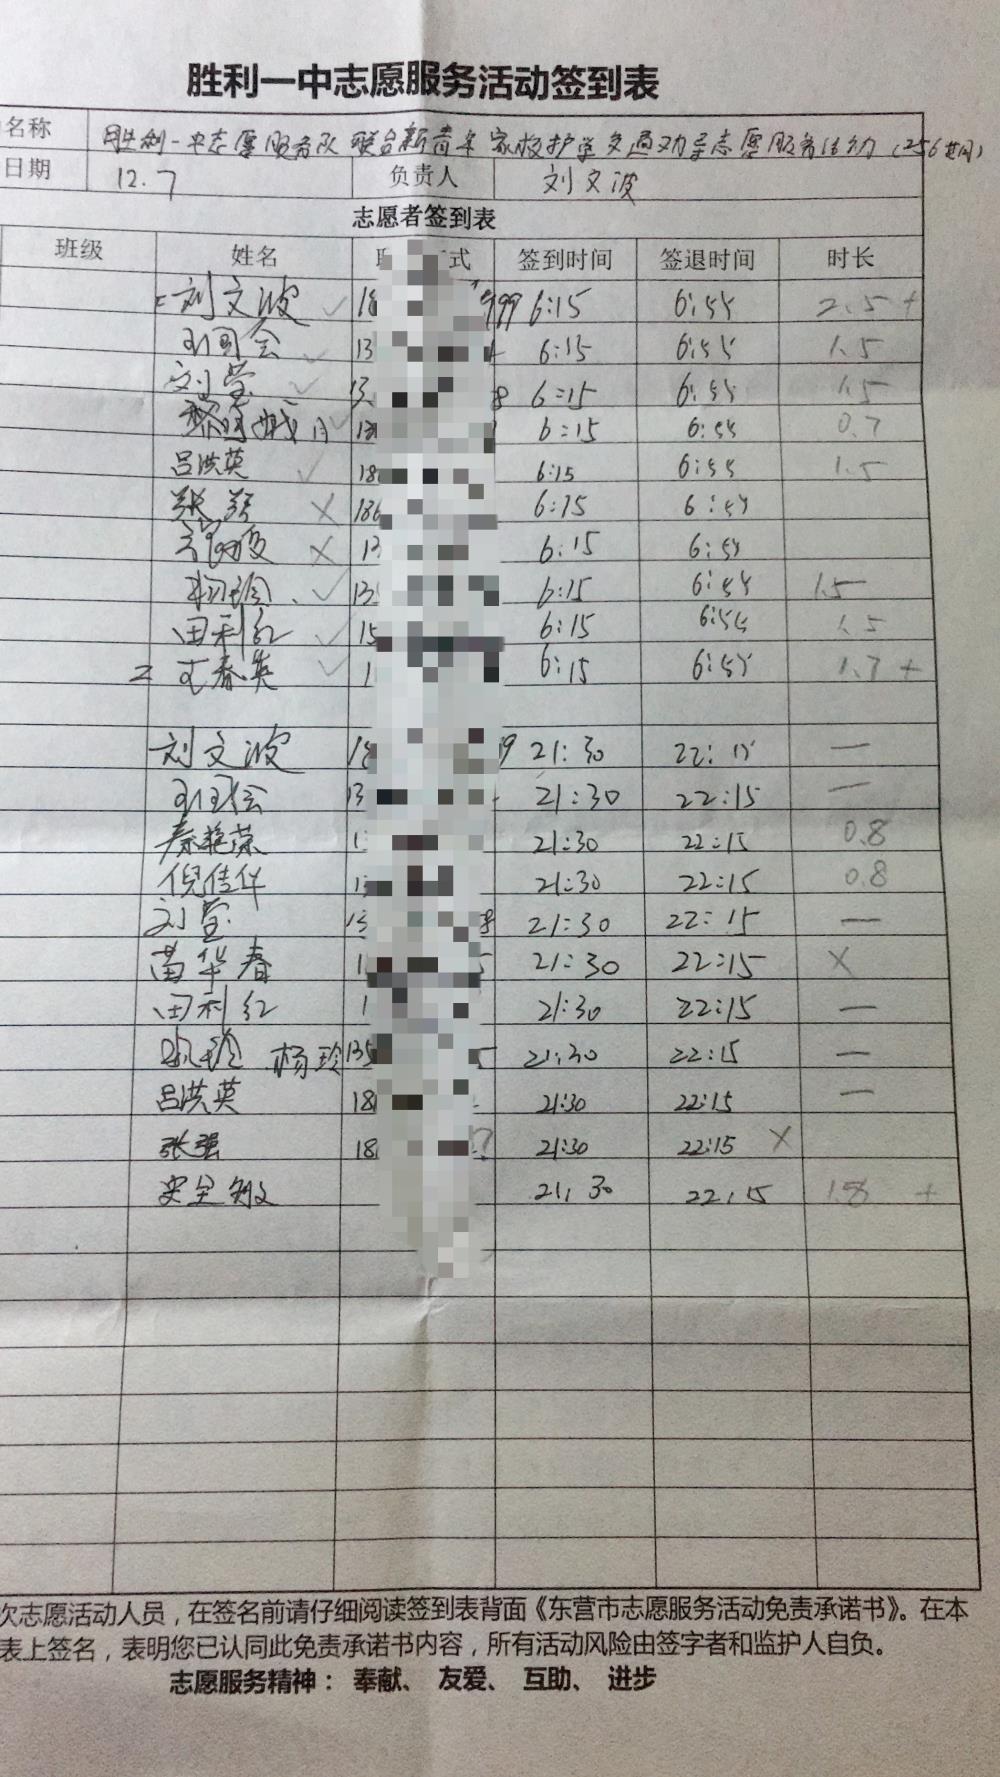 胜利一中志愿服务活动签到表
名称 胜利一中志愿服务队联合新青年家校护学交通劝导志愿服务活动(256期)
日期 12.7 负责人 刘文波
志愿者签到表
班级 姓名 式 签到时间 签退时间 时长
刘文波 ✓ 18 999 6:15 6:55 2.5 +
✓ 13 6:15 6:55 1.5
刘莹 ✓ 13 8 6:15 6:55 1.5
✓ 6:15 6:55 0.7
吕洪英 ✓ 18 6:15 6:55 1.5
张 × 186 6:15 6:55
× 13 6:15 6:55
✓ 13 6:15 6:55 1.5
田利红 ✓ 15 6:15 6:55 1.5
2 春英 ✓ 1 6:15 6:55 1.7 +
刘文波 18 9 21:30 22:15 —
13 21:30 22:15 —
秦艳荣 1 21:30 22:15 0.8
倪佳伴 13 21:30 22:15 0.8
刘莹 13 8 21:30 22:15 —
苗华春 1 5 21:30 22:15 ×
田利红 1 21:30 22:15 —
杨玲 135 5 21:30 22:15 —
吕洪英 18 21:30 22:15 —
张强 18 7 21:30 22:15 ×
安全敏 21:30 22:15 1.8 +
次志愿活动人员，在签名前请仔细阅读签到表背面《东营市志愿服务活动免责承诺书》。在本
表上签名，表明您已认同此免责承诺书内容，所有活动风险由签字者和监护人自负。
志愿服务精神： 奉献、 友爱、 互助、 进步